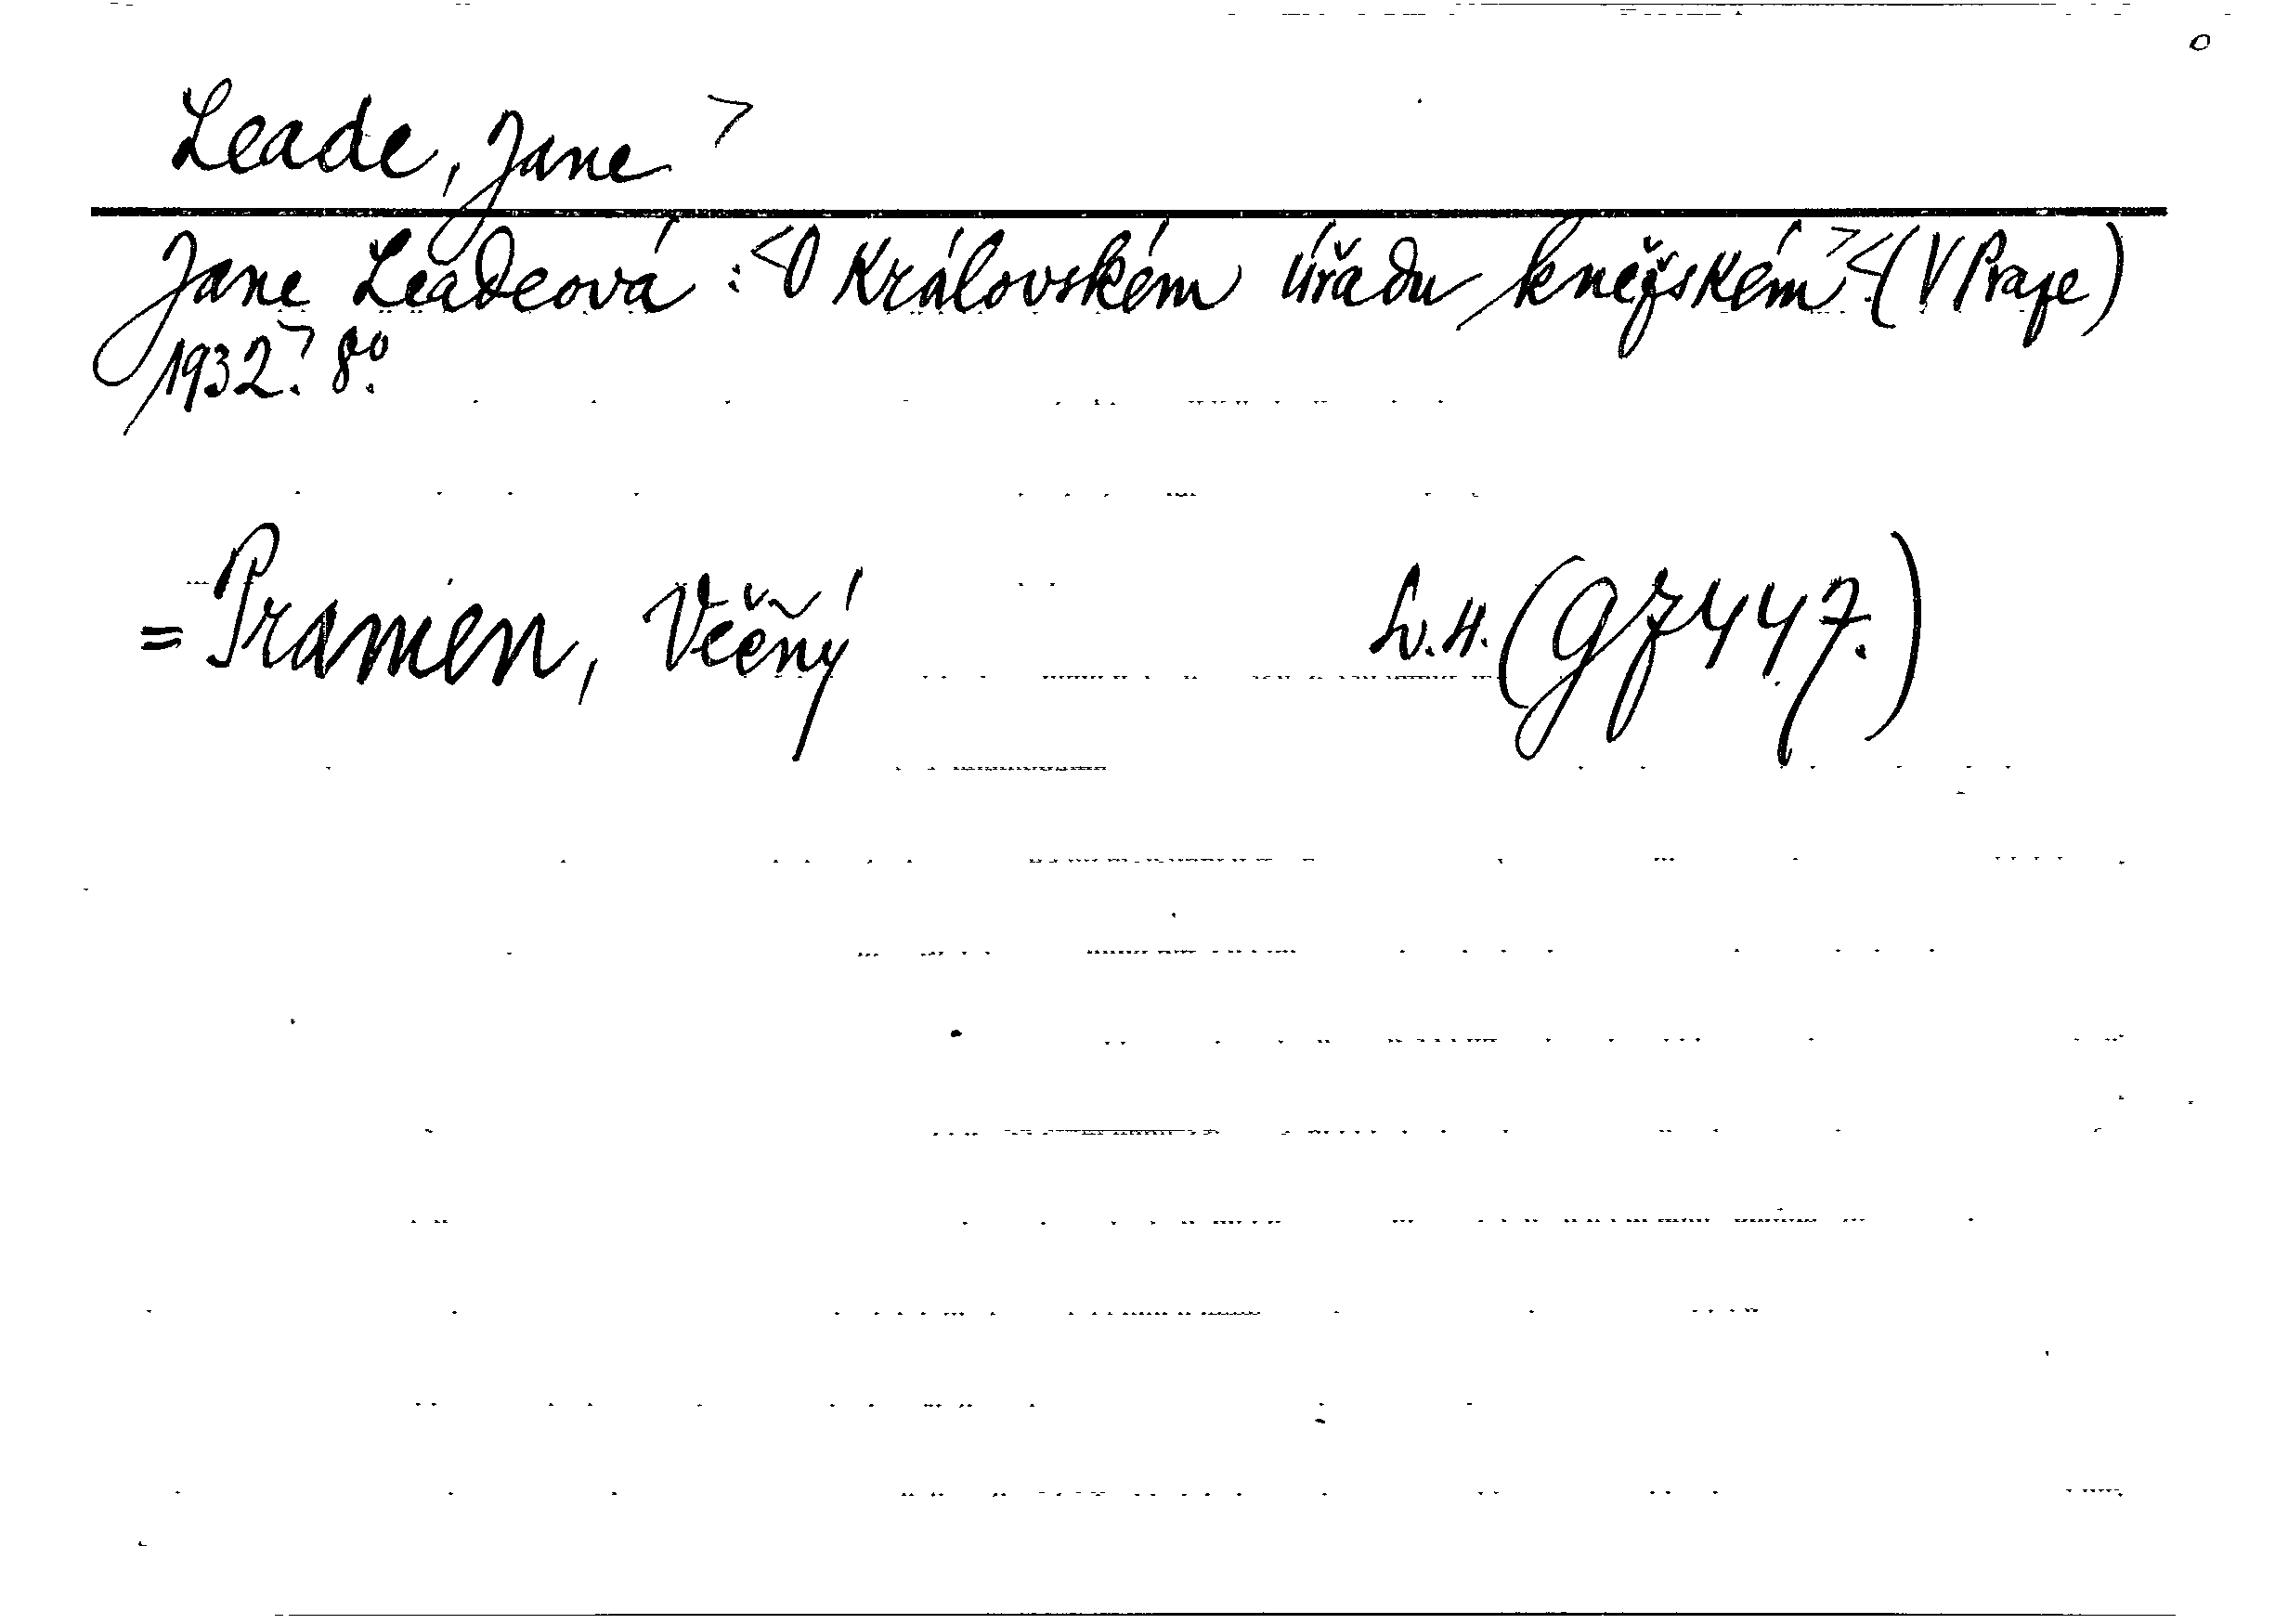 Leade, Jane >
Jane Leadeová: <O Královském úřadu kněžském> <(V Praze)
1932.> 8o.
= Pramen, Věčný (g 7447.)